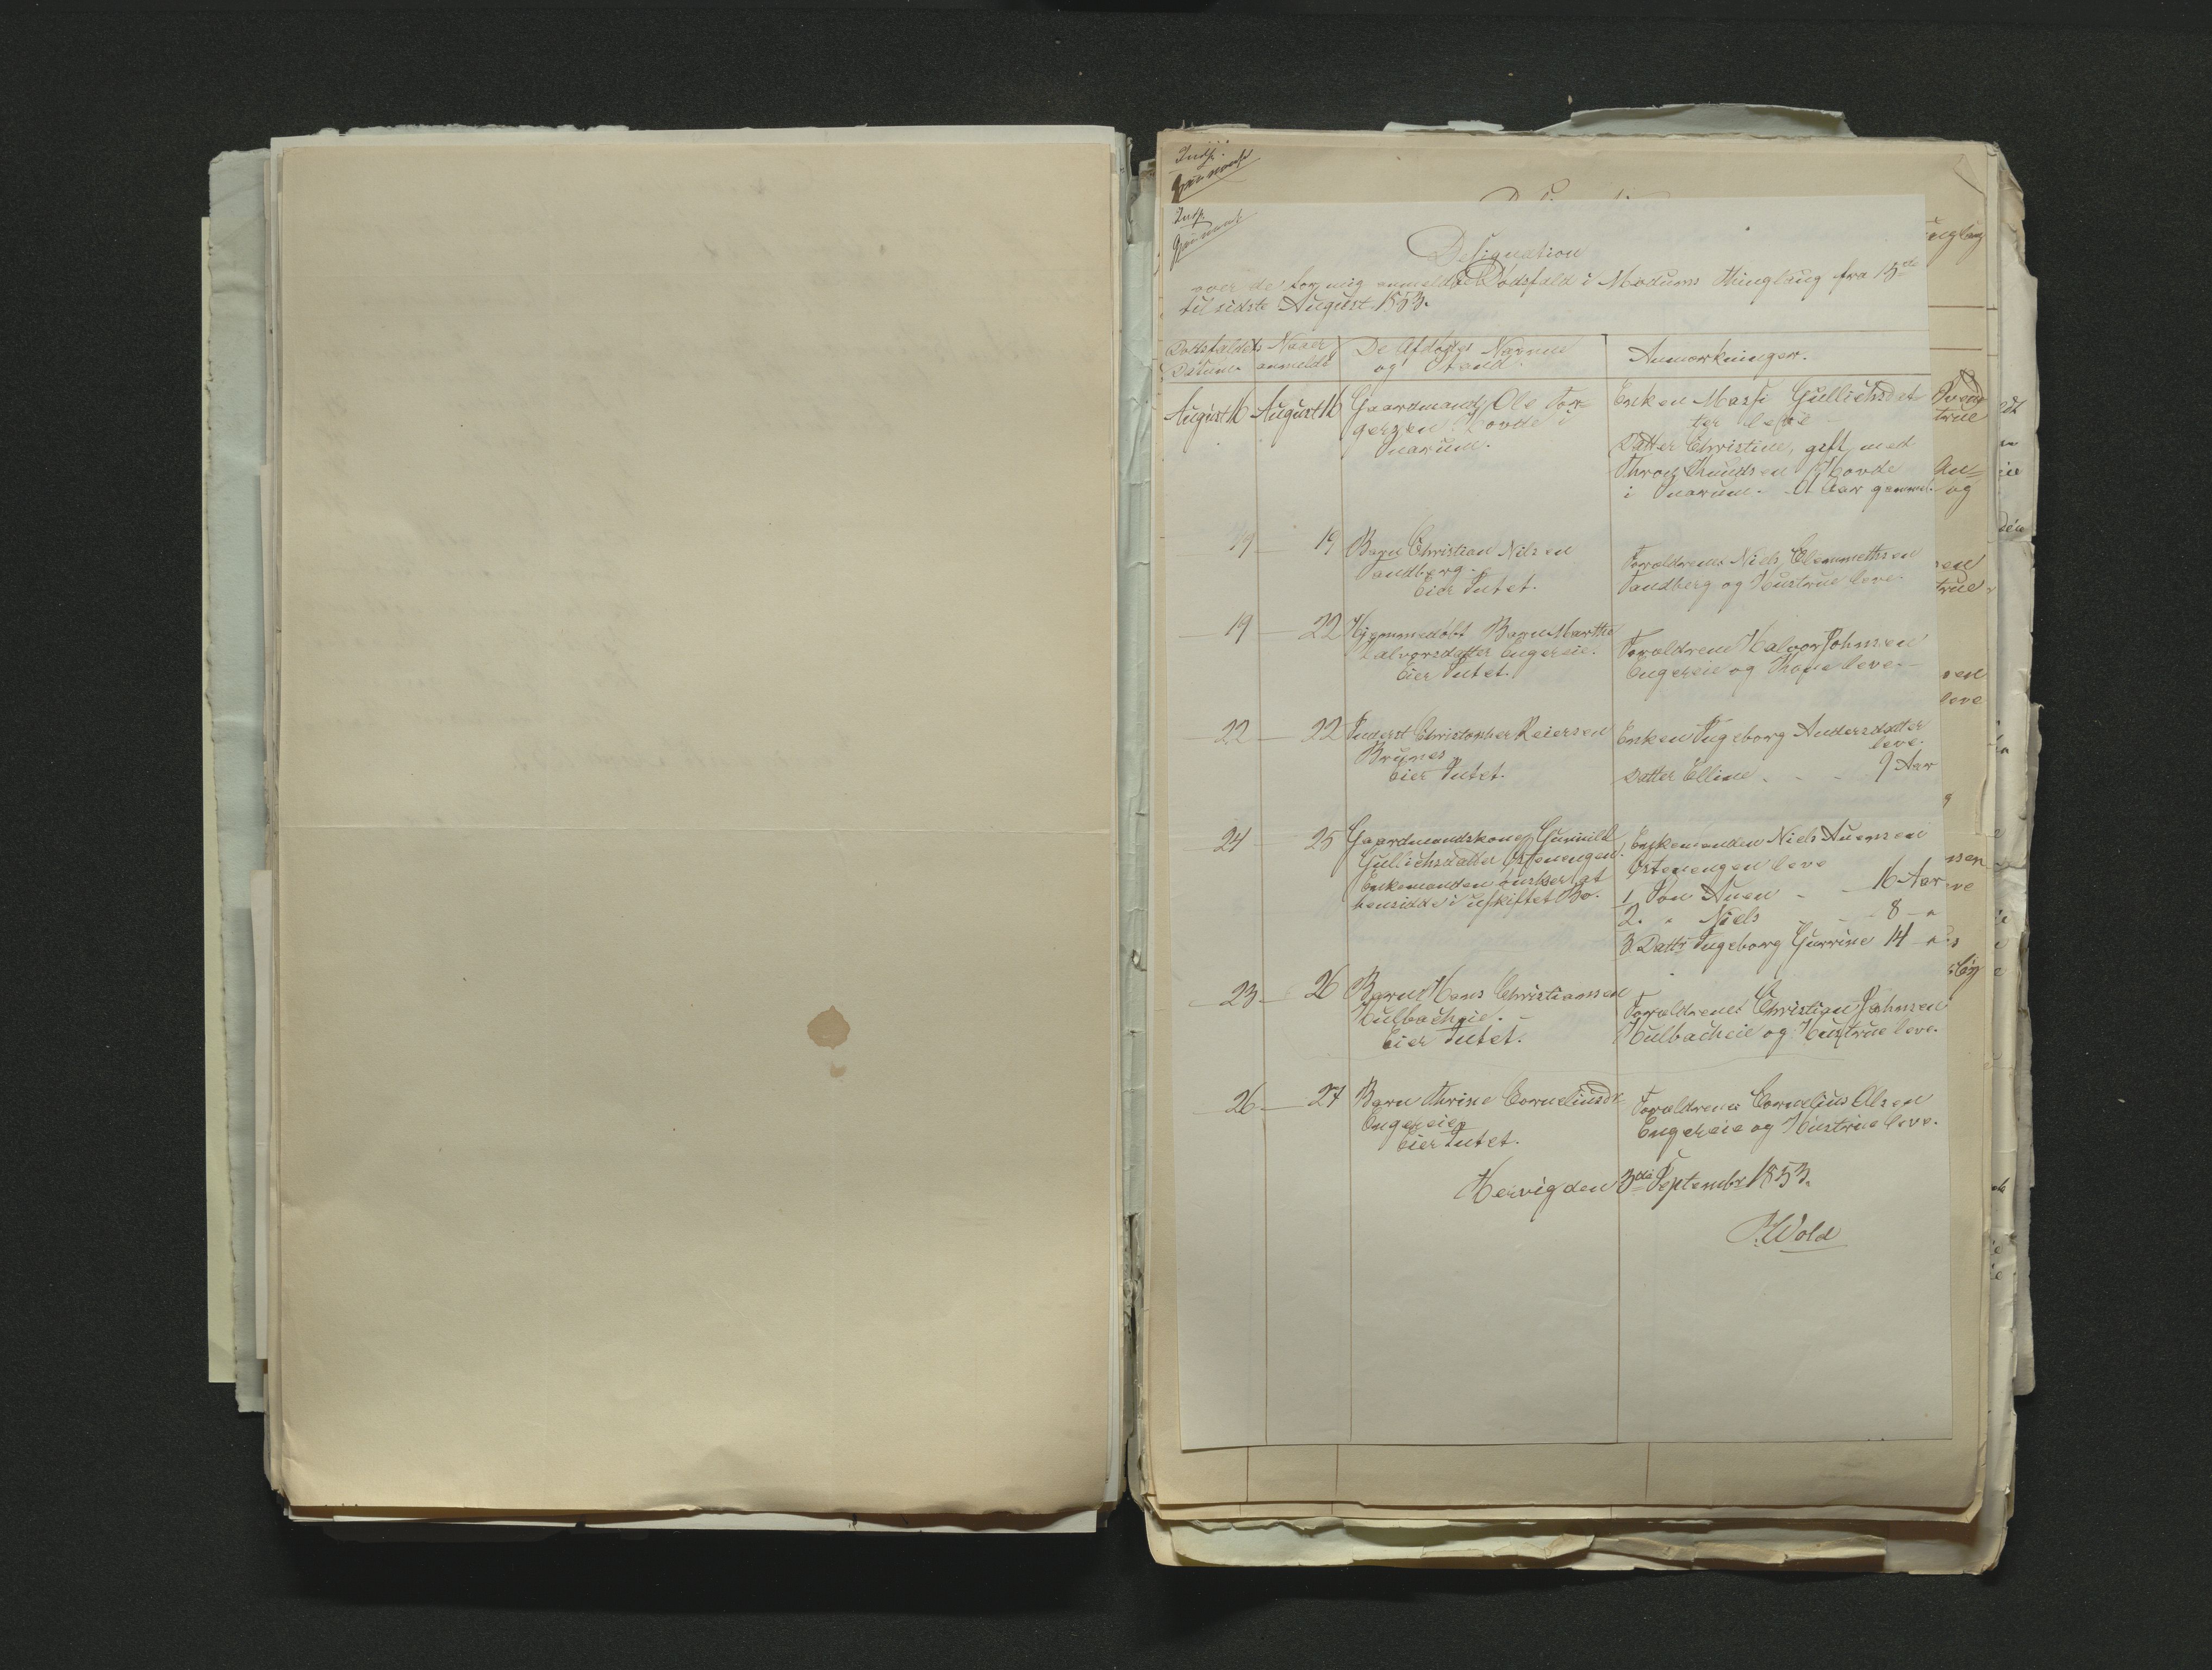 Indf.
Indf.
Designation
over de for mig anmeldte Dødsfald i Modums Thinglaug fra 15de
til sidste August 1853.
Dødsfaldets Datum
Naar anmeldt
De Afdødes Navne og Stand
Anmærkninger.
August 16 August 16 Gaardmand Ole Tor-
gersen Hovde i
Snarum.
Enken Marji Gullichsdat-
ter leve
Datter Christine, gift med
Thron Knudsen Hovde
i Snarum - Aar gammel.
19 — 19 Barn Christian Nilsen
Sandberg.
Eier Intet.
Forældrene Niels Clemmethsen
Sandberg og Hustrue leve.
19 — 22 Hjemmedøbt Barn Marthe
Halvorsdatter Engereie.
Eier Intet.
Forældrene Halvor Johnsen
Engereie og Kone leve.
22 — 22 Inderst Christopher Reiersen
Brunes
Eier Intet.
Enken Ingeborg Andersdatter
leve.
Datter Elline - - - 9 Aar
24 — 25 Gaardmandskone Gunnild
Gullichsdatter Østenengen.
Enkemanden ønsker at
hensidde i uskiftet Bo.
Enkemanden Niels Auensen
Østenengen leve
1. Søn Auen - - 16 Aar
2. " Niels - 8 - "
3. Dattr Ingeborg Gurrine 14 - "
23 — 26 Barn Hans Christiansen
Hulbackeie.
Eier Intet.
Forældrene Christian Johnsen
Hulbackeie og Hustrue leve.
26 — 27 Barn Thrine Corneliusdr
Engereie
Eier Intet.
Forældrene Cornelius Olsen
Engereie og Hustrue leve.
Hervig den 3die Septembr 1853.
Wold